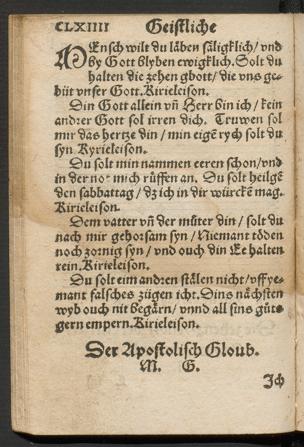 CLXIIII Geistliche
MEnsch wilt du läben säligklich/ vnd
by Gott blyben ewigklich. Solt du
halten die zehen gbott/ die vns ge-
büt vnser Gott. Kirieleison.
Din Gott allein vñ Herr bin ich/ kein
andrer Gott sol irren dich. Truwen sol
mir das hertze din/ min eigē rych solt du
syn Kyrieleison.
Du solt min nammen eeren schon/ vnd
in der not mich rüffen an. Du solt heilgē
den sabbattag/ dz ich in dir würckē mag.
Kirieleison.
Dem vatter vñ der müter din/ solt du
nach mir gehorsam syn/ Niemant töden
noch zornig syn/ vnd ouch din Ee halten
rein. Kirieleison.
Du solt eim andren stälen nicht/ vff ye-
mant falsches zügen icht. Dins nächsten
wyb ouch nit begärn/ vnnd all sins güts
gern empern. Kirieleison.
Der Apostolisch Gloub.
M. G.
Jch